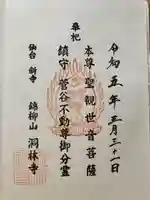 令和五年三月三十一日
奉祀
本尊聖観世音菩薩
鎮守菅谷不動尊御分霊
仙台 新寺
錦柳山 洞林寺